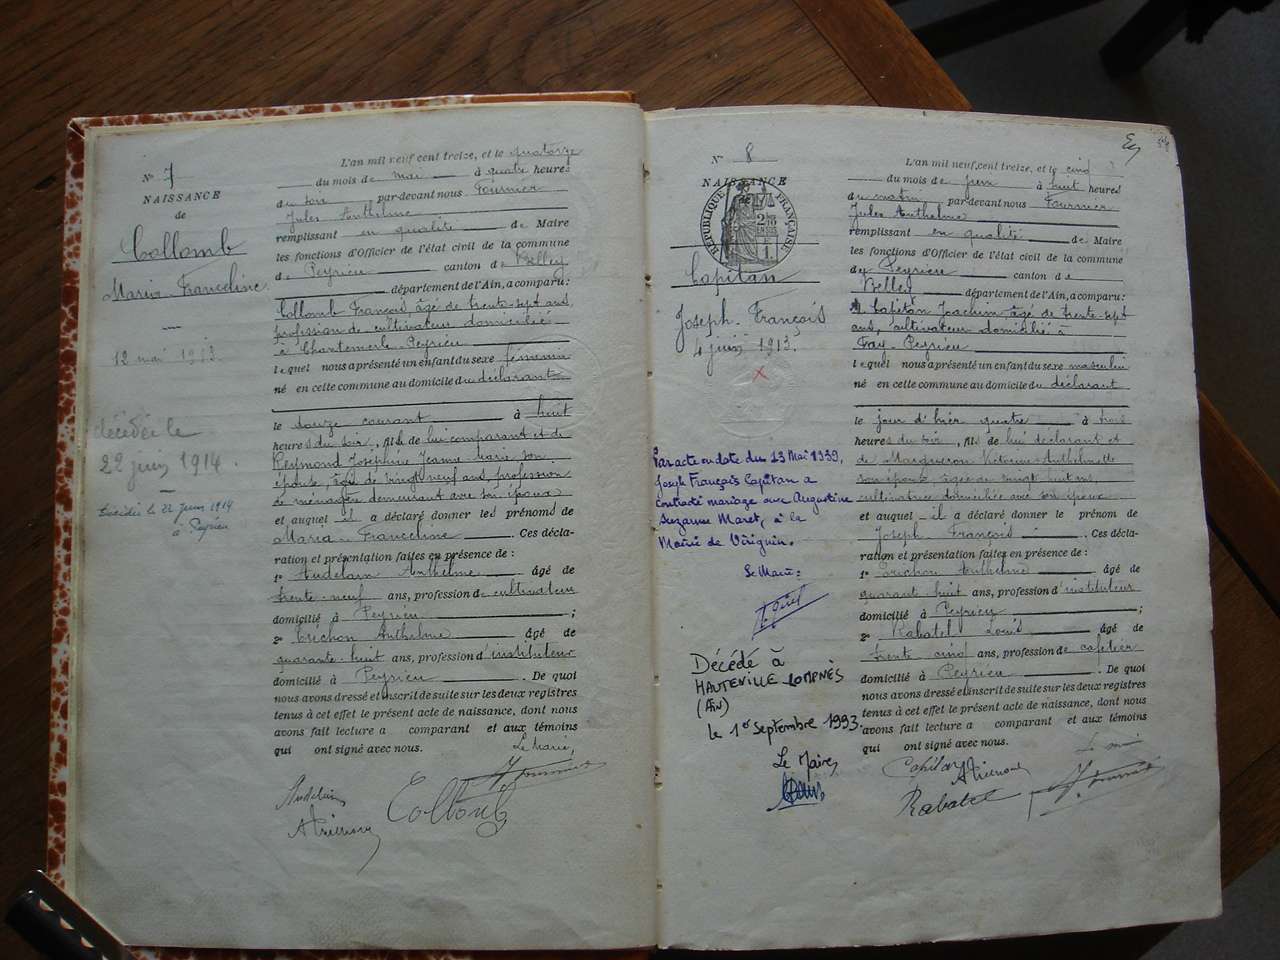 N° 7
NAISSANCE
de
Collomb
Maria Franceline
12 mai 1913
décédée le
22 juin 1914.
Décédée le 22 juin 1914
à Peyrieu
L'an mil neuf cent treize, et le quatorze
du mois de mai à quatre heures
du soir par-devant nous Fournier
Jules Anthelme
remplissant en qualité de Maire
les fonctions d'Officier de l'état civil de la commune
de Peyrieu canton de Belley
département de l'Ain, a comparu:
Collomb François, âgé de trente-sept ans
profession de cultivateur domicilié
à Chantemerle-Peyrieu
lequel nous a présenté un enfant du sexe féminin
né en cette commune au domicile du déclarant
le douze courant à huit
heures du soir, fils de lui comparant et de
Reymond Joséphine Jeanne Marie son
épouse, âgée de vingt neuf ans, profession
de ménagère demeurant avec son époux
et auquel il a déclaré donner les prénoms de
Maria Franceline. Ces décla-
ration et présentation faites en présence de :
1° Audelain Anthelme âgé de
trente-neuf ans, profession de cultivateur
domicilié à Peyrieu ;
2° Trichon Anthelme âgé de
quarante-huit ans, profession d'instituteur
domicilié à Peyrieu. De quoi
nous avons dressé et inscrit de suite sur les deux registres
tenus à cet effet le présent acte de naissance, dont nous
avons fait lecture a comparant et aux témoins
qui ont signé avec nous.
Le Maire,
Audelain
A Trichon
Collomb
J. Fournier
N° 8
NAISSANCE
de
RÉPUBLIQUE FRANÇAISE
Capitan
Joseph François
4 juin 1913.
x
Par acte en date du 13 Mai 1939,
Joseph François Capitan a
contracté mariage avec Augustine
Suzanne Maret, à la
Mairie de Virignin.
Le Maire:
Décédé à
HAUTEVILLE LOMPNES
(AIN)
le 1er Septembre 1993.
Le Maire,
L'an mil neuf cent treize, et le cinq
du mois de juin à huit heures
du matin par-devant nous Fournier
Jules Anthelme
remplissant en qualité de Maire
les fonctions d'Officier de l'état civil de la commune
de Peyrieu canton de
Belley département de l'Ain, a comparu:
Capitan Joachim, âgé de trente-sept
ans, cultivateur domicilié à
Fay-Peyrieu
lequel nous a présenté un enfant du sexe masculin
né en cette commune au domicile du déclarant
le jour d'hier quatre à trois
heures du soir, fils de lui déclarant et
de Marqueron Victorine Anthelmette
son épouse, âgée de vingt huit ans
cultivatrice domiciliée avec son époux
et auquel il a déclaré donner les prénom de
Joseph François. Ces décla-
ration et présentation faites en présence de :
1° Trichon Anthelme âgé de
quarante huit ans, profession d'instituteur
domicilié à Peyrieu ;
2° Rabatel Louis âgé de
trente cinq ans, profession de cafetier
domicilié à Peyrieu. De quoi
nous avons dressé et inscrit de suite sur les deux registres
tenus à cet effet le présent acte de naissance, dont nous
avons fait lecture a comparant et aux témoins
qui ont signé avec nous.
Le maire
Capitan
A Trichon
Rabatel
J. Fournier